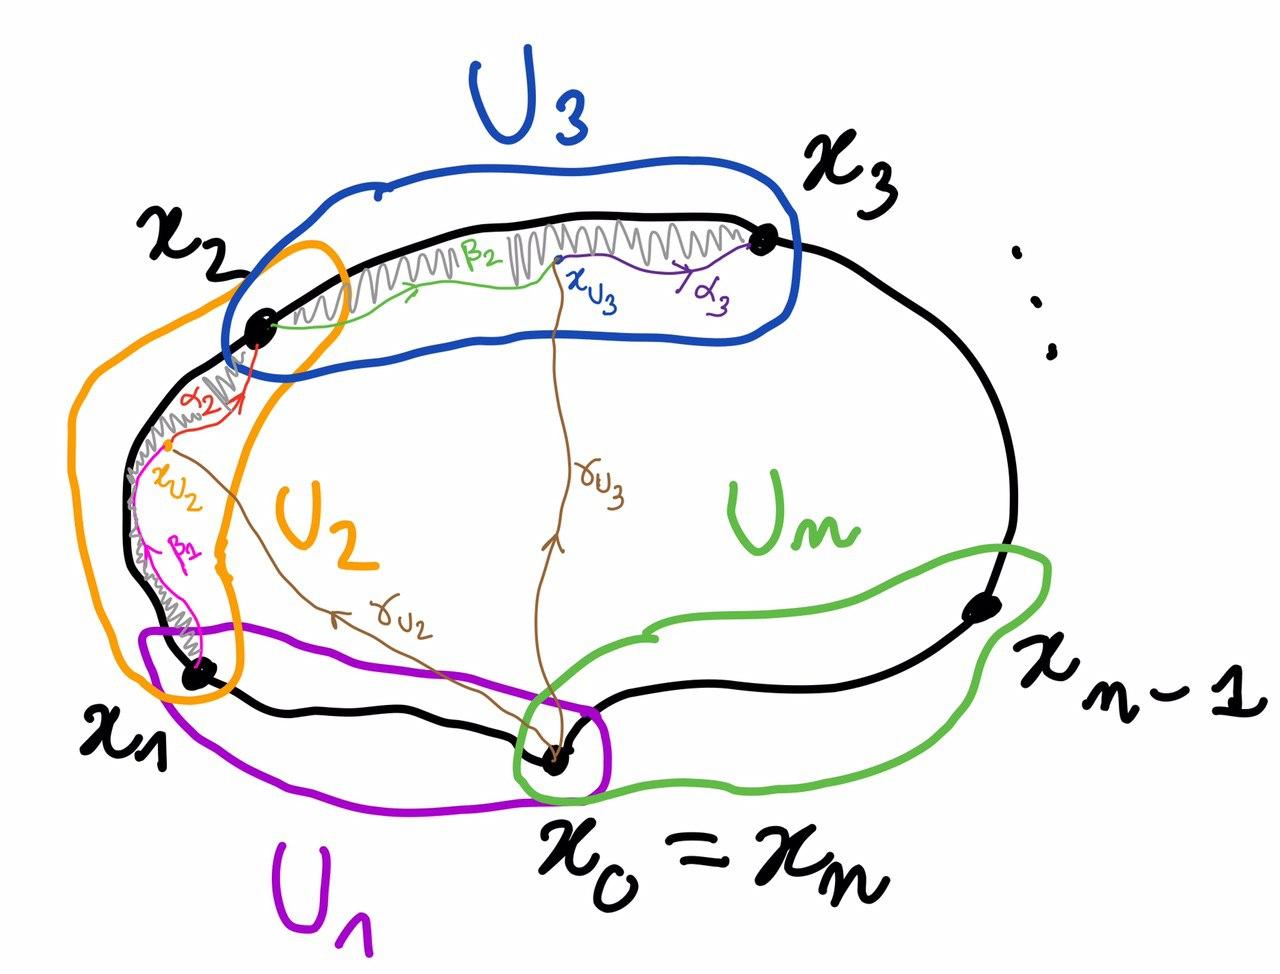 U₃
x₃
x₂
β₂
x_{U₃}
α₃
α₂
x_{U₂}
γ_{U₃}
U₂
Uₙ
β₁
γ_{U₂}
x_{n-1}
x₁
x₀ = xₙ
U₁